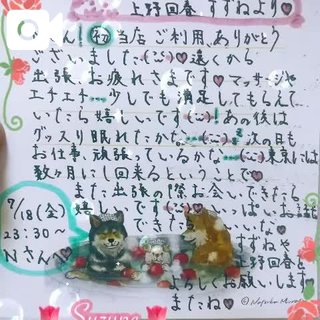 上野回春 すずねより♡
さん！初当店ご利用、ありがとう
ございました(･･)♡遠くから
出張、お疲れさまです♡マッサージや
エチエチ…少しでも満足してもらえて
いたら嬉しいです(･･)!あの後は
グッスリ眠れたかな…(･･)?次の日も
お仕事、頑張っているかな…(･･)東京には
数ヶ月に1回来るということで♡
また出張の際お会いできたら
嬉しいです いっぱいお話も
できたら いいな♡
すずねや
上野回春を
よろしくお願いします
またね♡
7/18(金)
23:30〜
Nさんへ♡
Suzune